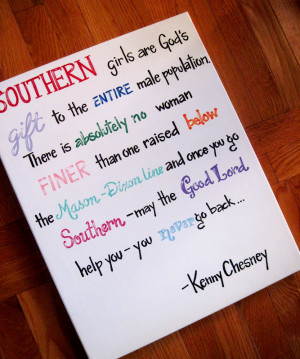 SOUTHERN girls are God's
gift to the ENTIRE male population.
There is absolutely no woman
FINER than one raised below
the Mason-Dixon line and once you go
Southern - may the Good Lord
help you - you never go back...
-Kenny Chesney